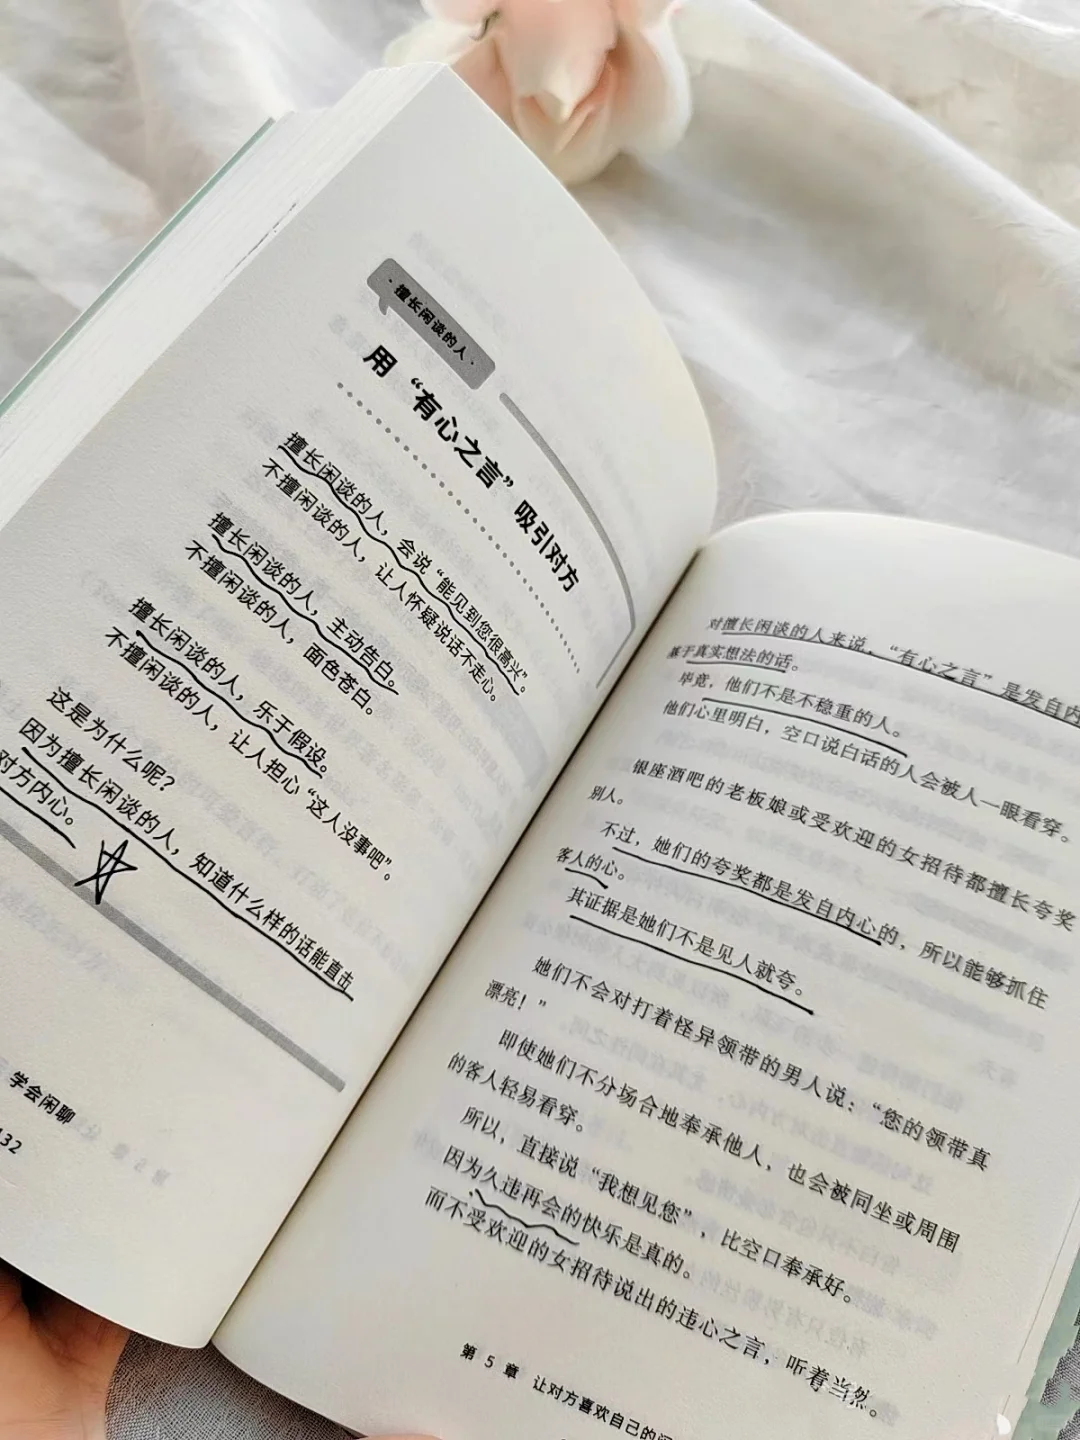 ·擅长闲谈的人·
用“有心之言”吸引对方
擅长闲谈的人，会说“能见到您很高兴”。
不擅闲谈的人，让人怀疑说话不走心。
擅长闲谈的人，主动告白。
不擅闲谈的人，面色苍白。
擅长闲谈的人，乐于假设。
不擅闲谈的人，让人担心“这人没事吧”。
这是为什么呢？
因为擅长闲谈的人，知道什么样的话能直击
对方内心。
学会闲聊
132
对擅长闲谈的人来说，“有心之言”是发自内
基于真实想法的话。
毕竟，他们不是不稳重的人。
他们心里明白，空口说白话的人会被人一眼看穿。
银座酒吧的老板娘或受欢迎的女招待都擅长夸奖
别人。
不过，她们的夸奖都是发自内心的，所以能够抓住
客人的心。
其证据是她们不是见人就夸。
她们不会对打着怪异领带的男人说：“您的领带真
漂亮！”
即使她们不分场合地奉承他人，也会被同坐或周围
的客人轻易看穿。
所以，直接说“我想见您”，比空口奉承好。
因为久违再会的快乐是真的。
而不受欢迎的女招待说出的违心之言，听着当然。
第 5 章 让对方喜欢自己的闲